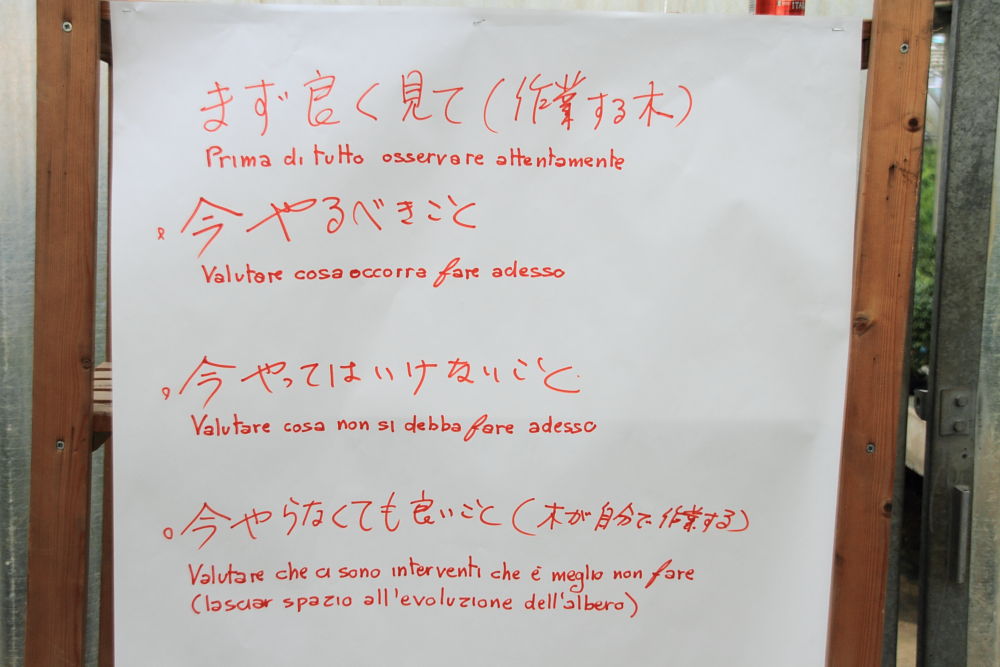 まず良く見て(作業する木)
Prima di tutto osservare attentamente
今やるべきこと
Valutare cosa occorra fare adesso
今やってはいけないこと
Valutare cosa non si debba fare adesso
今やらなくても良いこと(木が自分で作業する)
Valutare che ci sono interventi che è meglio non fare
(lasciar spazio all'evoluzione dell'albero)